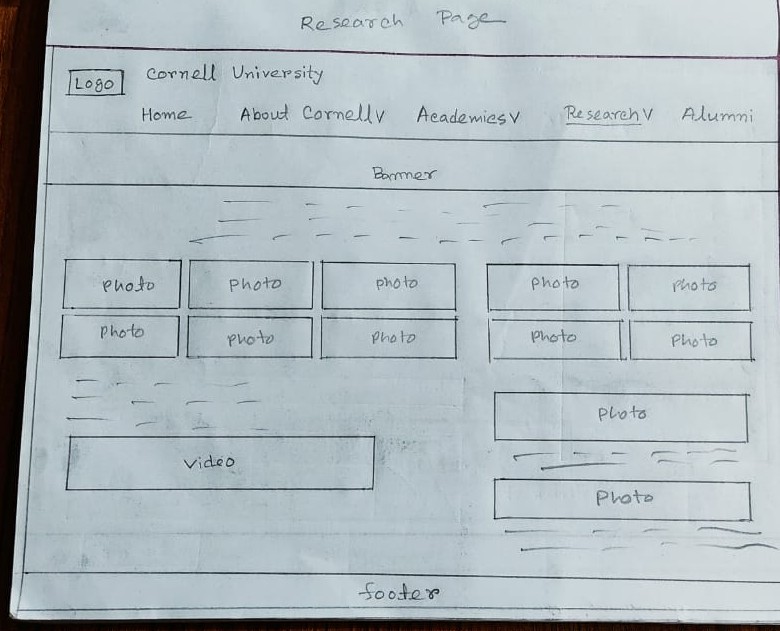 Research Page
Logo
Cornell University
Home About Cornell v Academics v Research v Alumni
Banner
Photo Photo Photo Photo Photo
Photo Photo Photo Photo Photo
Photo
Video
Photo
footer